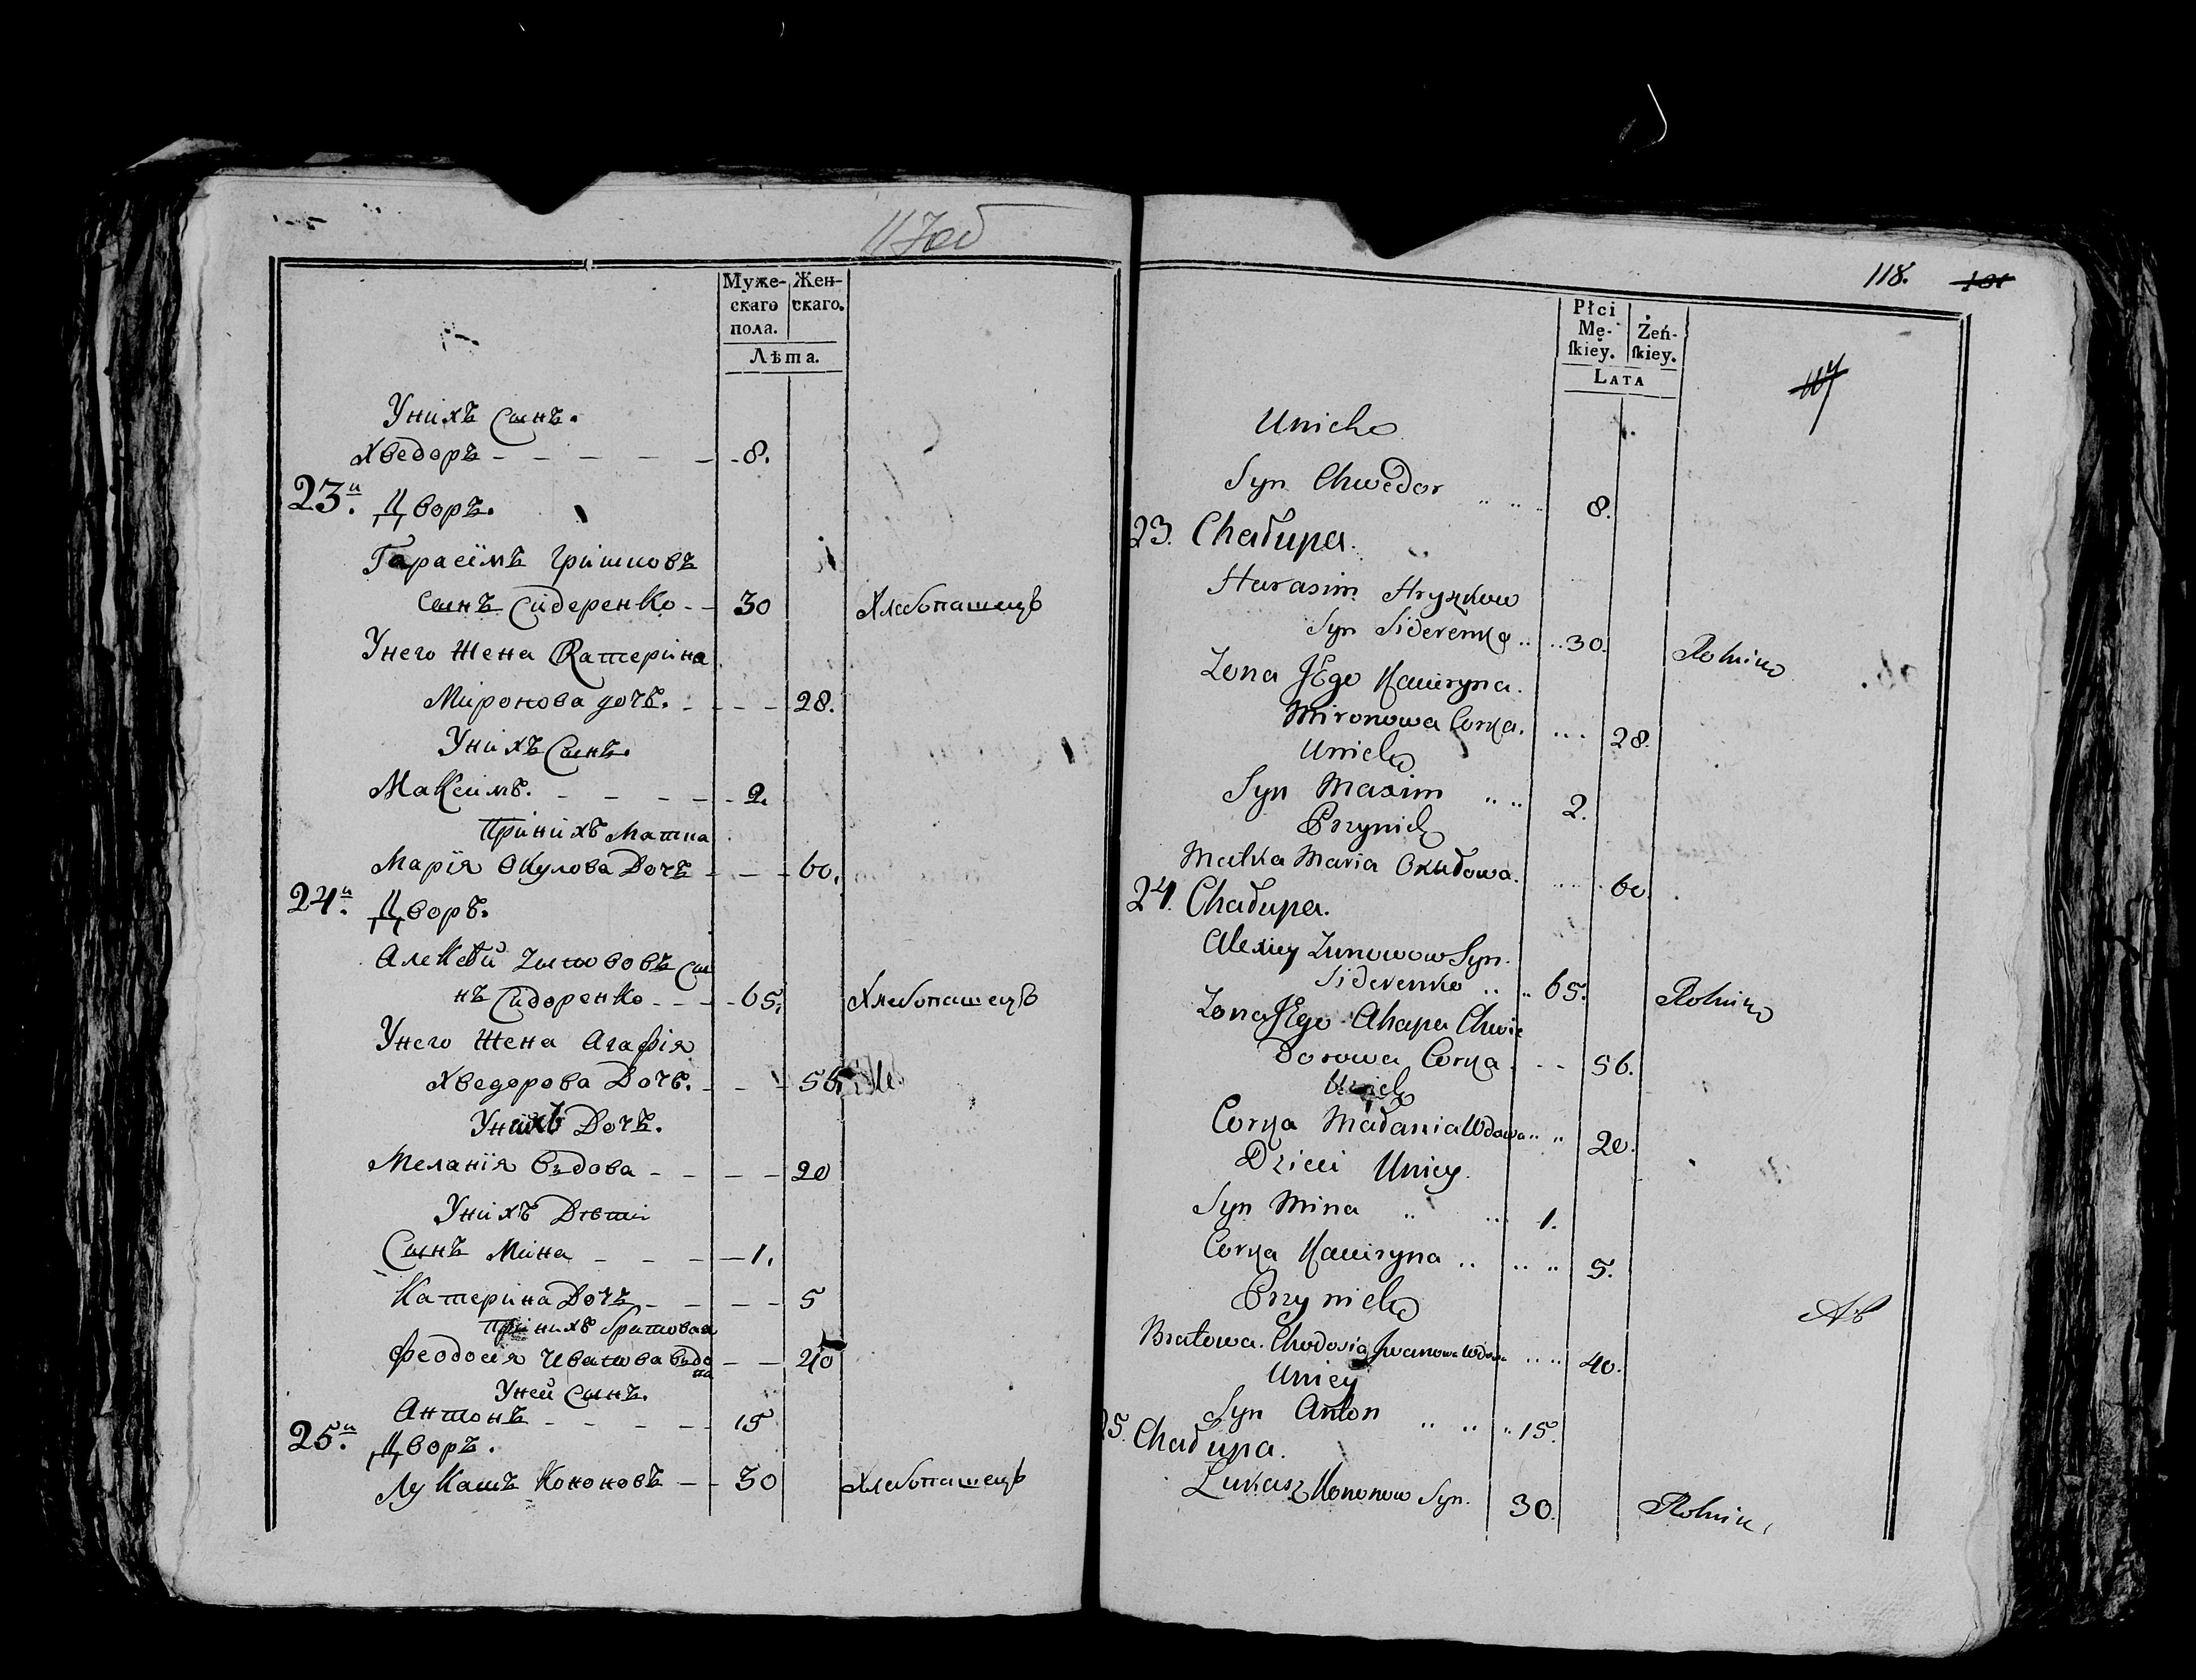 117об
Муже-
скаго
пола.
Жен-
скаго.
Лѣта.
Унихъ Сынъ.
Хведоръ - - - - - - 8.
23й. Дворъ.
Герасімъ Грішковъ
Сынъ Сідеренко - - 30 Хлебопашецъ
Унего Жена Катеріна
Міронова дочъ. - - - - 28.
Уніхъ Сынъ.
Максімъ. - - - - - 2.
Прініхъ Матка
Марія Окулова Дочъ - - - 60.
24й. Дворъ.
Алексѣй Сы
нъ Сідоренко - - - - 65. Хлебопашецъ
Унего Жена Агафія
Хведорова Дочъ. - - - 56.
Уніхъ Дочъ.
Меланія Вздова - - - - 20
Уніхъ Дѣти
Сынъ Міна - - - - 1.
Катеріна Дочъ - - - - 5
Прініхъ братовая
Феодосія Іванова Вздо - - 40
ва
Уней Сынъ.
Антонъ - - - - - 15
25й. Дворъ.
Лукашъ Кононовъ - - 30 Хлебопашецъ
118. 101
Płci
Mę-
ſkiey.
Żeń-
ſkiey.
LATA
117
Unich
Syn Chwedor .. .. 8.
23. Chałupa.
Harasim Hryszkow
Syn Siderenko .. .. 30. Rolnik
Zona Jego Kateryna.
Mironowa Corka. ... 28.
Unich
Syn Maxim .. .. 2.
Przynich
Matka Maria Okułowa. .... 60.
24. Chałupa.
Alexiey Syn.
Siderenko .. .. 65. Rolnik
Zona Jego Ahapa Chwie
dorowa Corka . - - 56.
Unich
Corka Małania Wdowa .. .. 20.
Dzieci Uniey.
Syn Mina .. ... 1.
Corka Kateryna .. .. .. 5.
Przynich
Bratowa. Chodosia Jwanowa Wdowa .. .. 40.
Uniey
Syn Anton .. .. .. 15.
25. Chałupa.
Łukasz Kononow Syn. 30. Rolnik